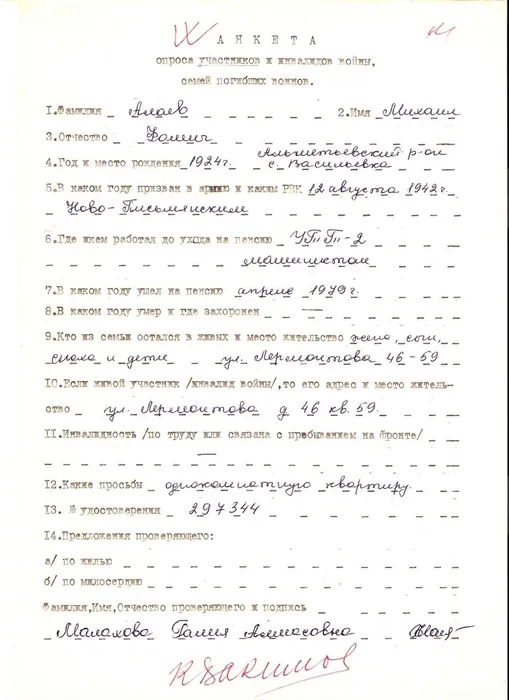 АНКЕТА
опроса участников и инвалидов войны,
семей погибших воинов.
1.Фамилия Алаев 2.Имя Михаил
3.Отчество Фомич
4.Год и место рождения 1924г. Альметьевский р-он с. Васильевка
5.В каком году призван в армию и каким РВК 12 августа 1942г.
Ново-Письмянским
6.Где и кем работал до ухода на пенсию УПП-2
машинистом
7.В каком году ушел на пенсию апреле 1979г.
8.В каком году умер и где захоронен —
9.Кто из семьи остался в живых и место жительство жена, сын,
сноха и дети ул. Лермонтова 46-59
10.Если живой участник /инвалид войны/,то его адрес и место житель-
ство ул. Лермонтова д 46 кв. 59.
11.Инвалидность /по труду или связана с пребыванием на фронте/
—
12.Какие просьбы однокомнатную квартиру.
13. № удостоверения 297344
14.Предложения проверяющего:
а/ по жилью
б/ по милосердию
Фамилия,Имя,Отчество проверяющего и подпись
Малахова Галия Алмасовна